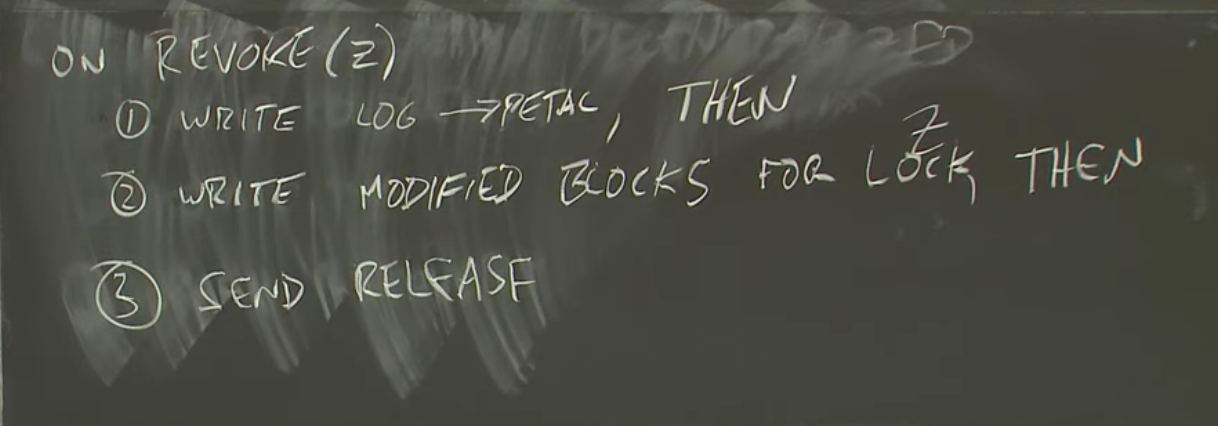 ON REVOKE(Z)
① WRITE LOG → PETAL, THEN
② WRITE MODIFIED BLOCKS FOR LOCK Z, THEN
③ SEND RELEASE